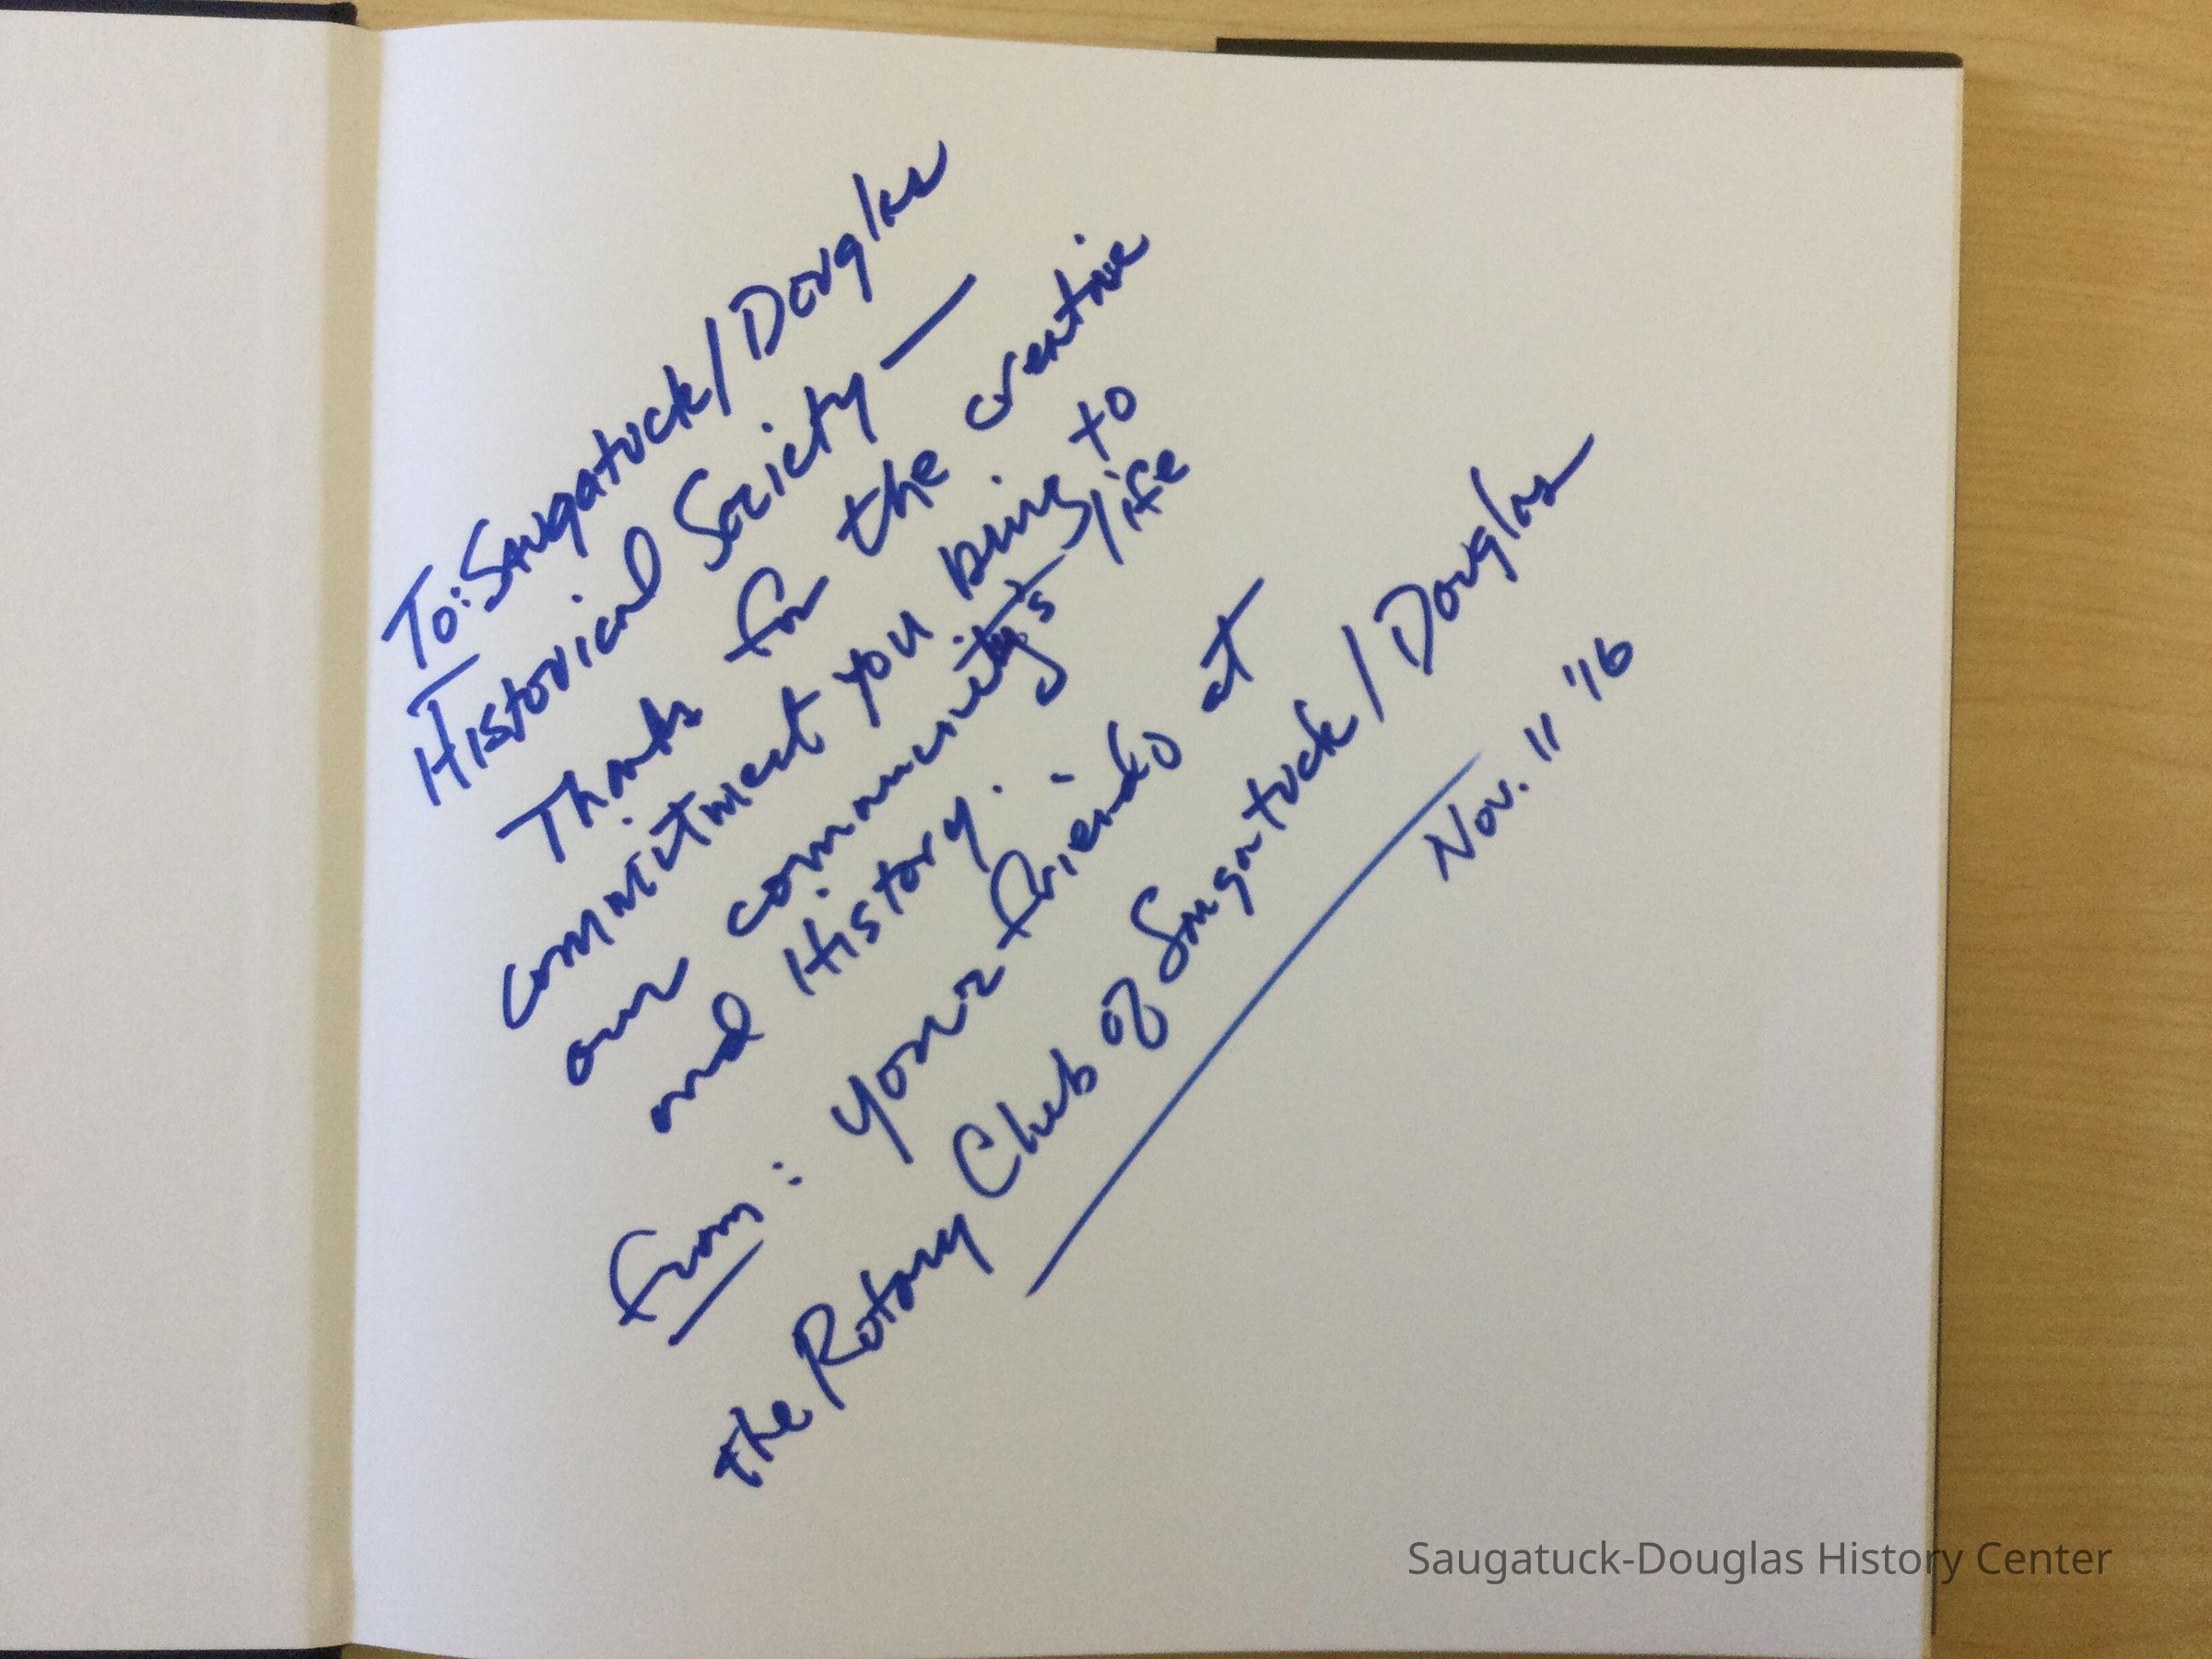 To: Saugatuck/Douglas
Historical Society —
Thanks for the creative
commitment you bring to
our community's life
and History.
From: your friends at
the Rotary Club of Saugatuck/Douglas
Nov. 11 '16
Saugatuck-Douglas History Center